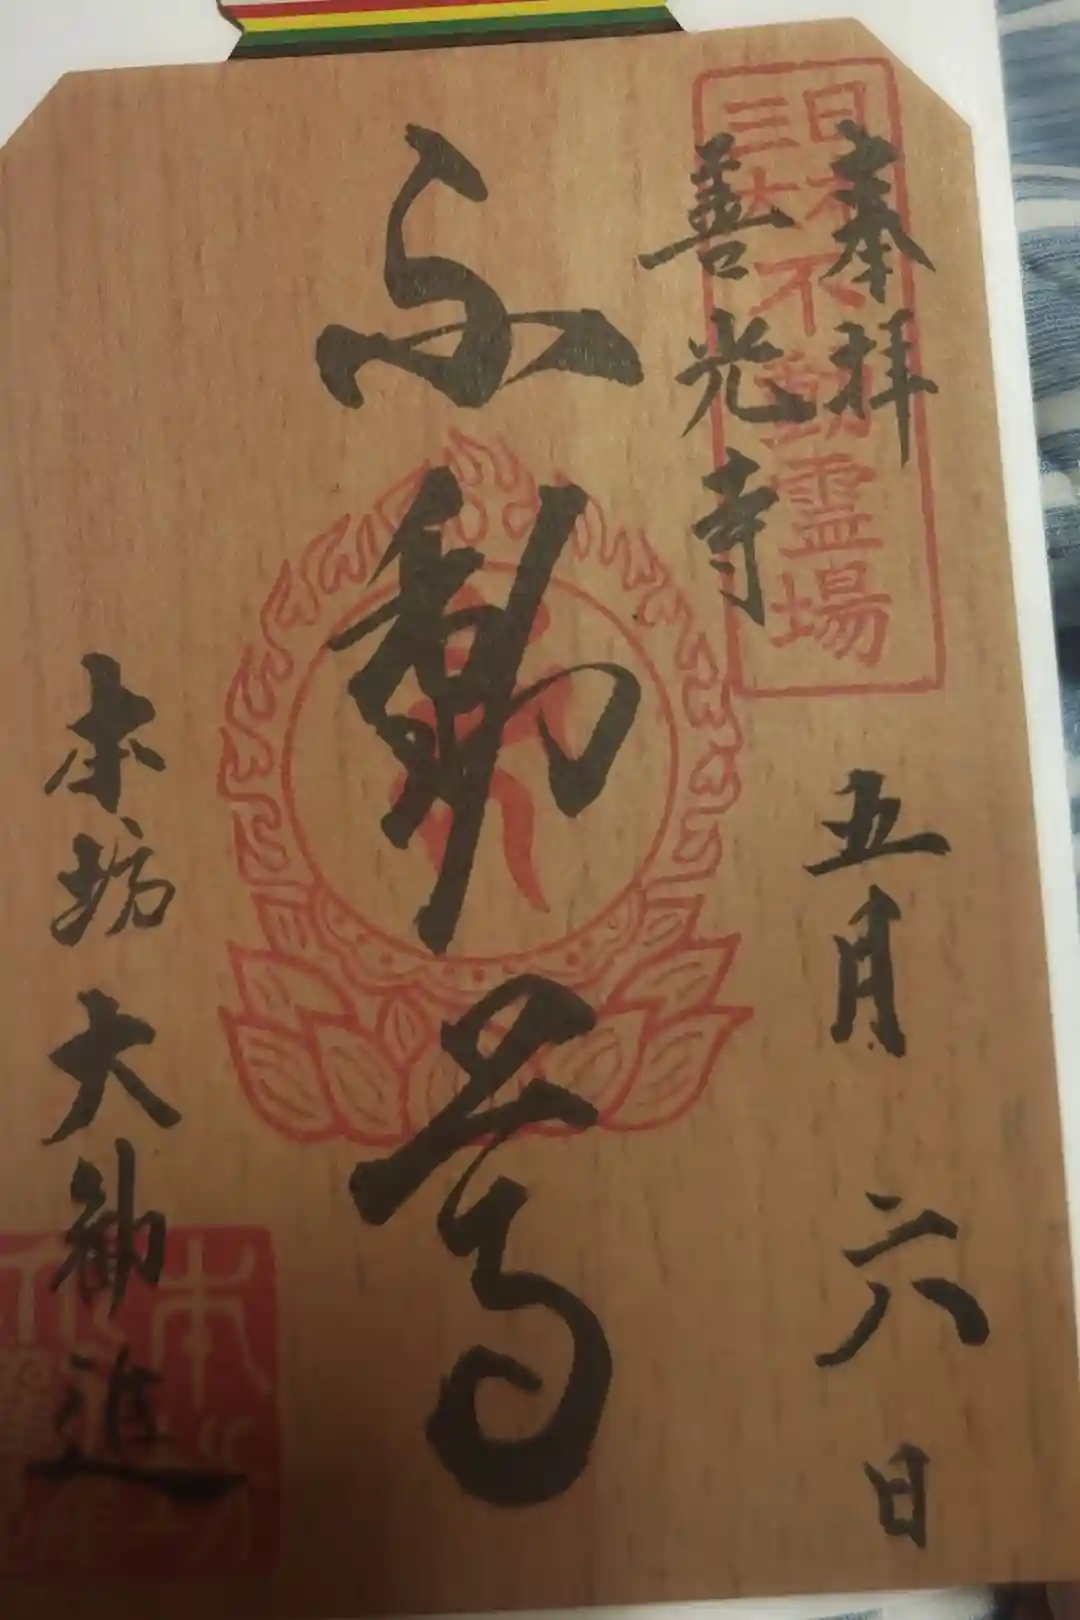 奉拝
五月六日
善光寺
日本
三大
不動霊場
不動尊
本坊大勧進